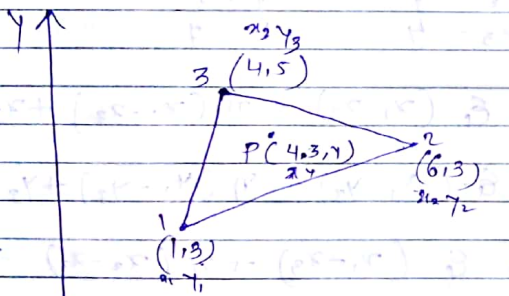 Y
x3 y3
3 (4,5)
P(4.3,4)
x y
2
(6,3)
x2 y2
1
(1,3)
x1 y1